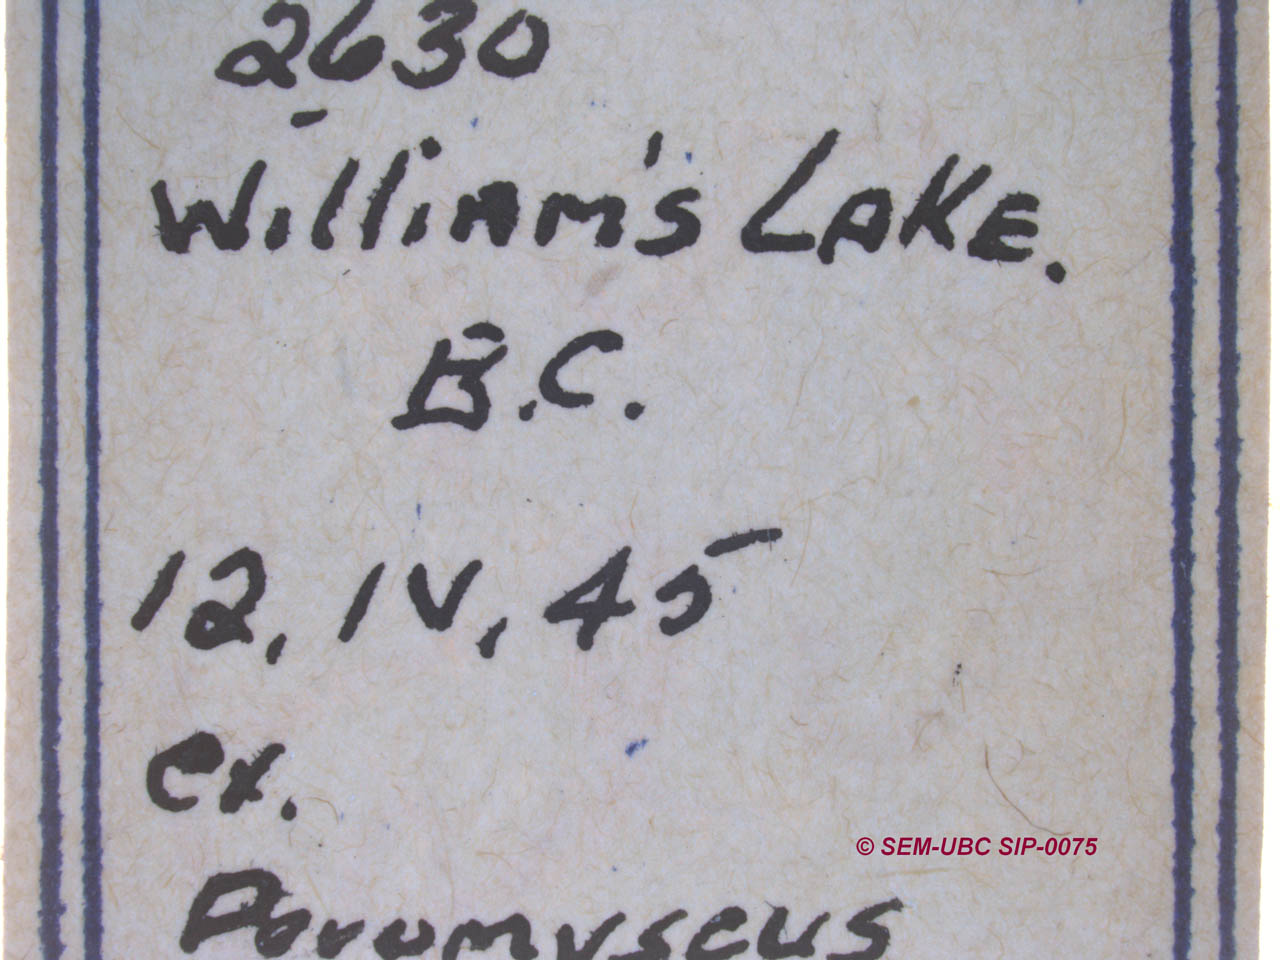 2630
William's Lake.
B.C.
12, IV, 45
ex.
© SEM-UBC SIP-0075
Peromyscus